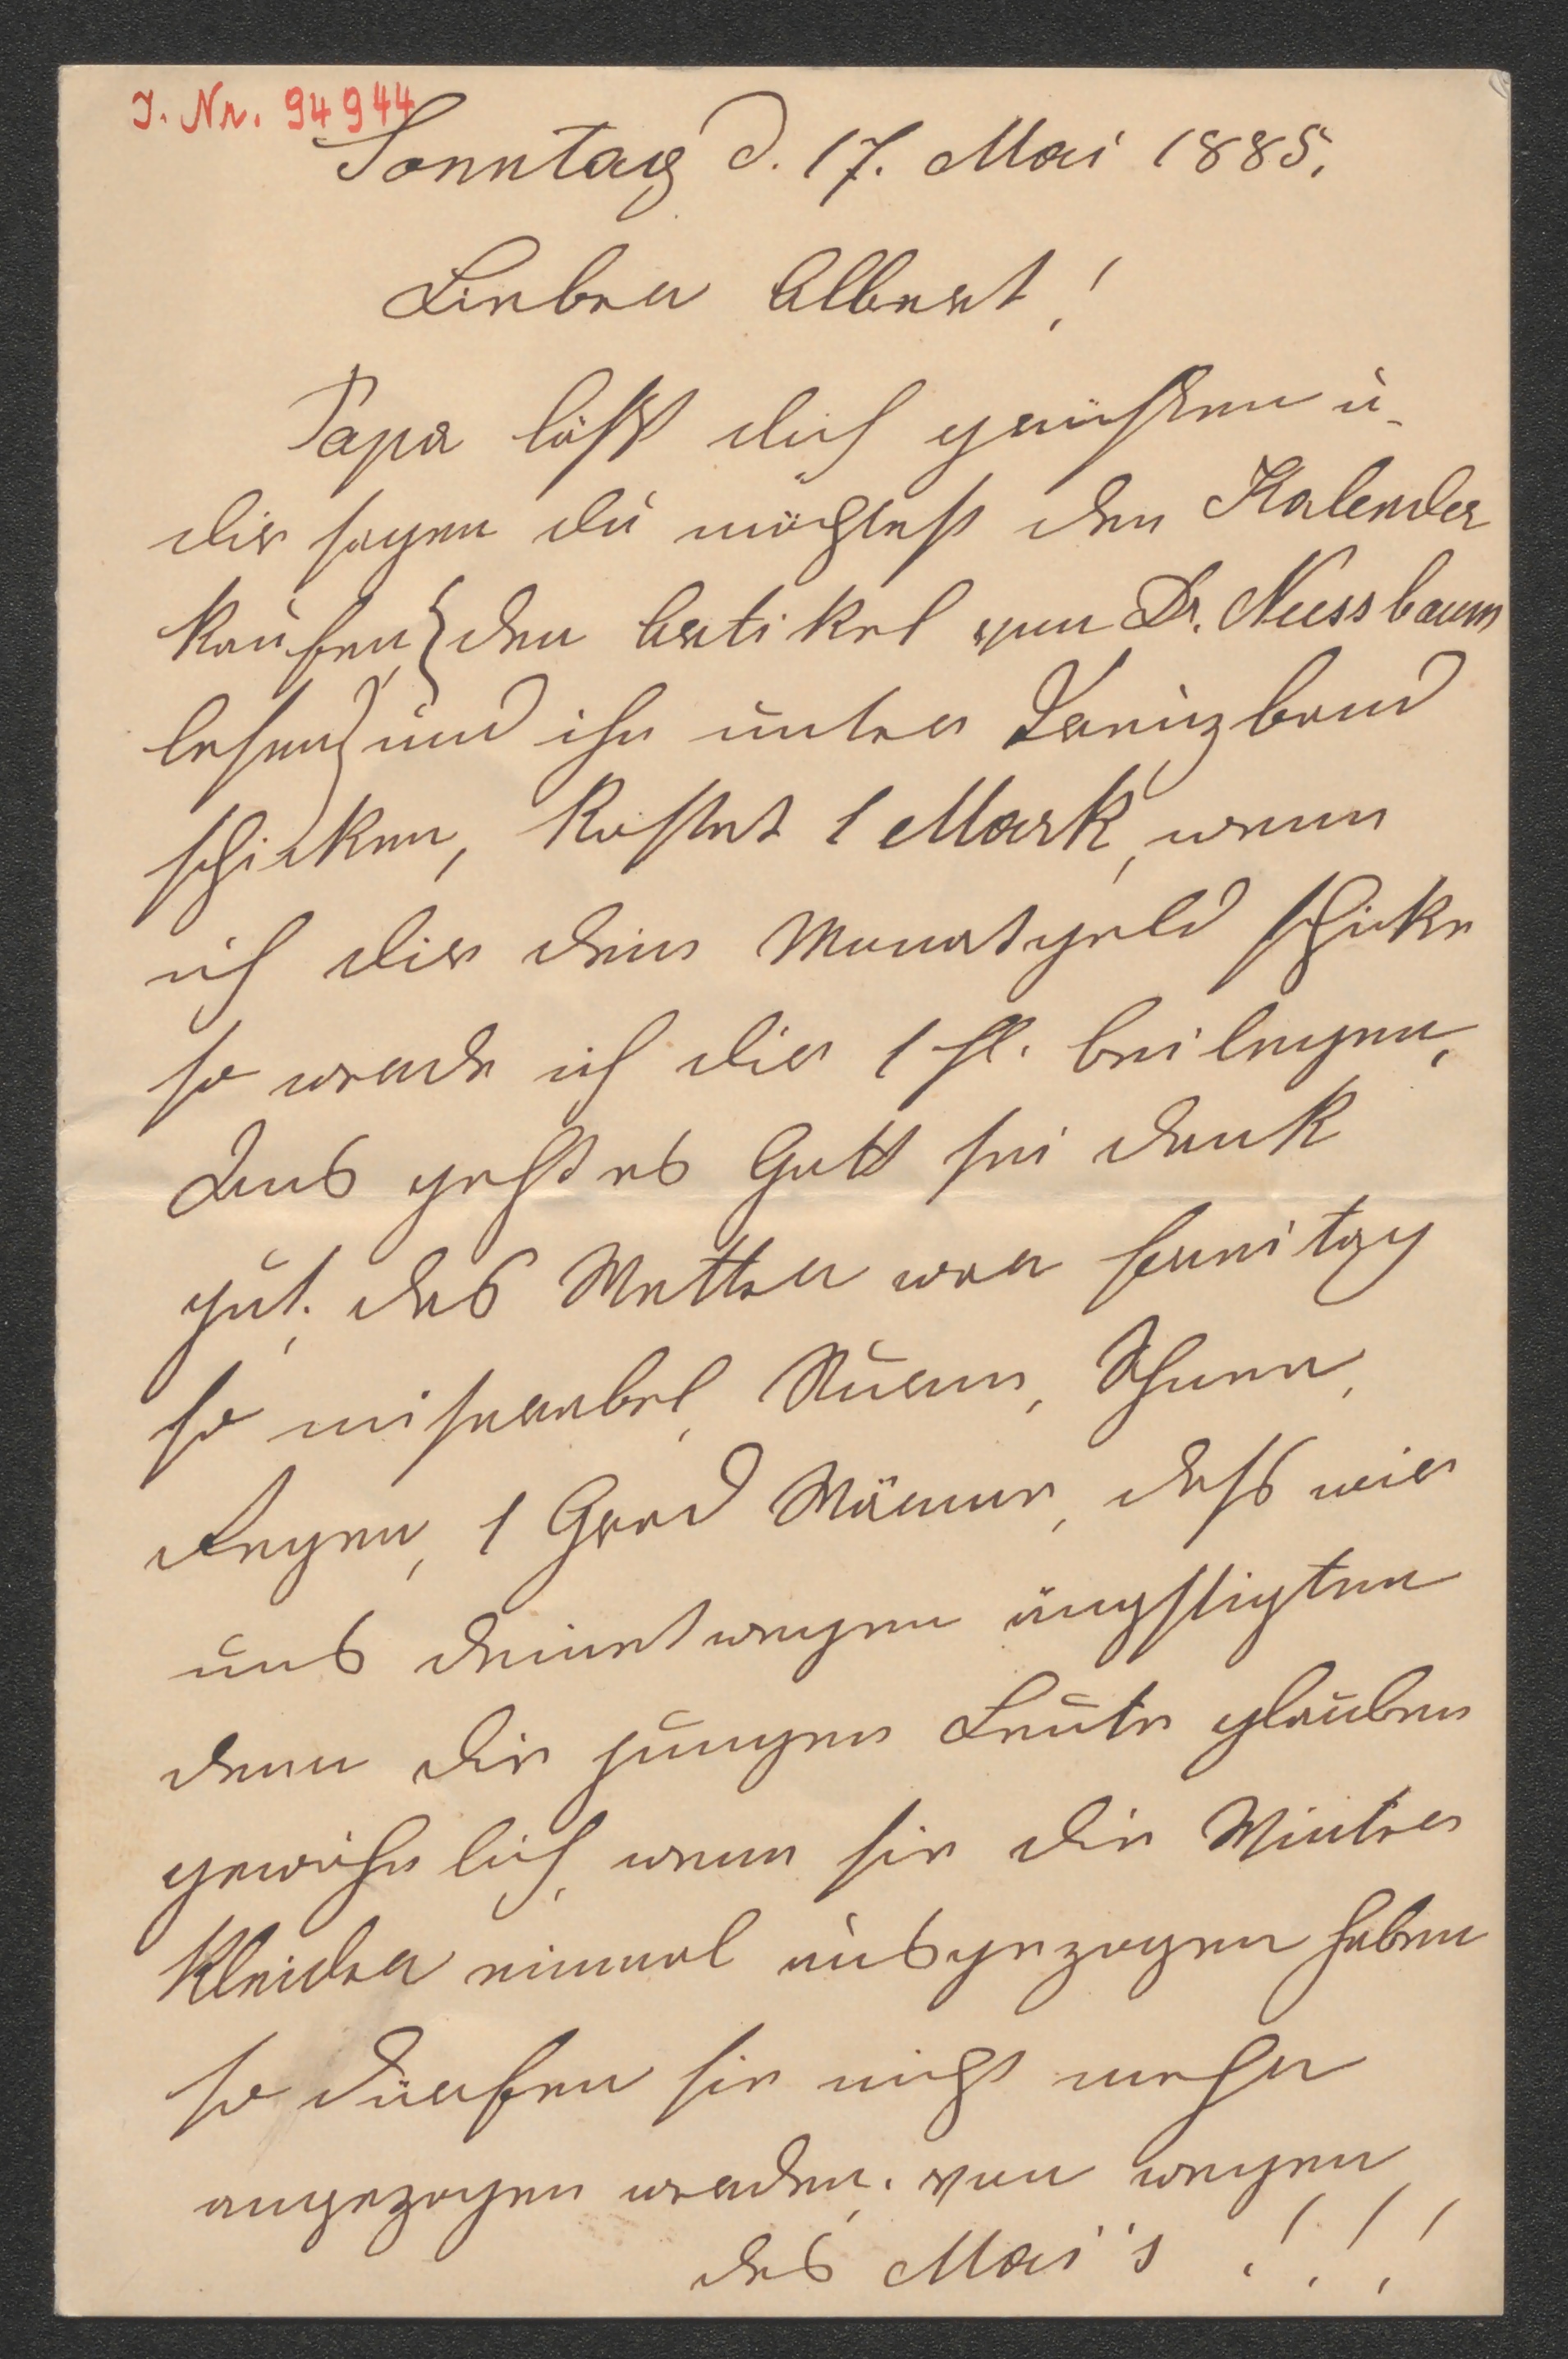 J. Nr. 94944
Sonntag d. 17. Mai 1885.
Lieber Albert!
Papa läßt dich grüßen u.
dir sagen du möchtest den Kalender
kaufen, {den Artikel von Dr. Nussbaum
lesen} und ihn unter Kreuzband
schicken, kostet 1 Mark, wenn
ich dir dein Monatgeld schicke
so werde ich dir 1 fl. beilegen,
Uns geht es Gott sei dank
gut, das Wetter war freitag
so miserabel, Sturm, Schnee,
Regen, 1 Grad Wärme, daß wir
uns deinetwegen ängstigten
denn die jungen Leute glauben
gewöhnlich, wenn sie die Winter
Kleider einmal ausgezogen haben
so dürfen sie nicht mehr
angezogen werden, von wegen
des Mai's !!!